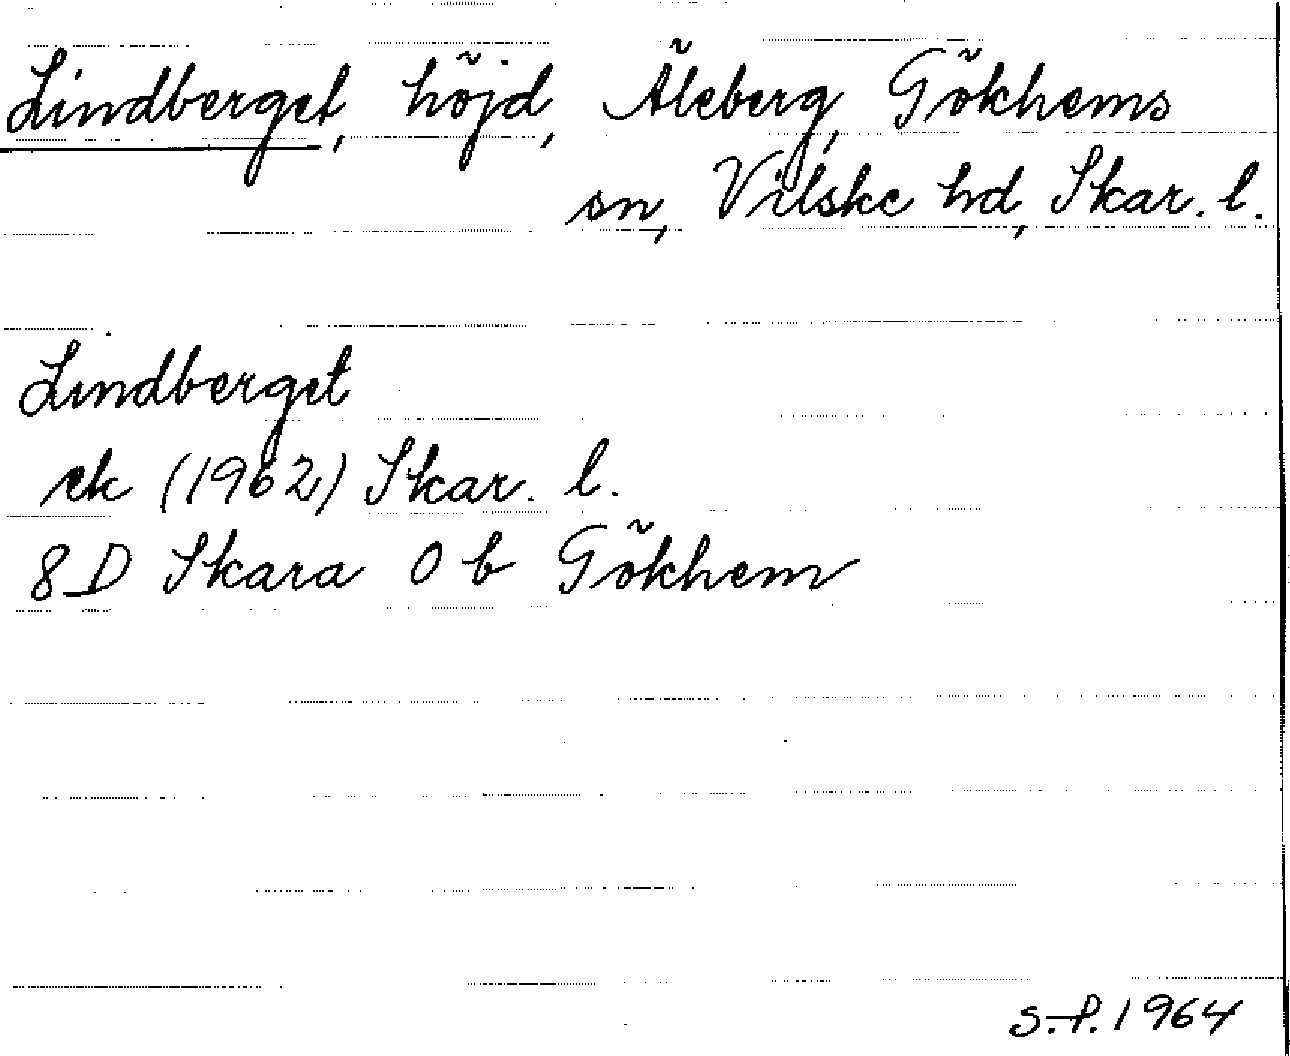 Lindberget, höjd, Äleberg, Gökhems
sn, Vilske hd, Skar. l.
Lindberget
ek (1962) Skar. l.
8D Skara 0 b Gökhem
S.P. 1964